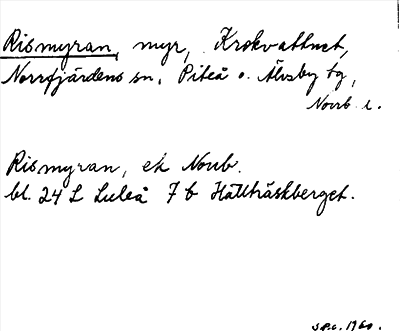 Rismyran, myr, Krokvattnet,
Norrfjärdens sn, Piteå o. Älvsby tg,
Norrb. l.
Rismyran, ek Norrb.
bl. 24 L Luleå 7 b Hällträskberget.
1960.